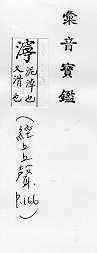 彙音寶鑑
濘 泥淖也
又滑也
(經五聲
p.166)